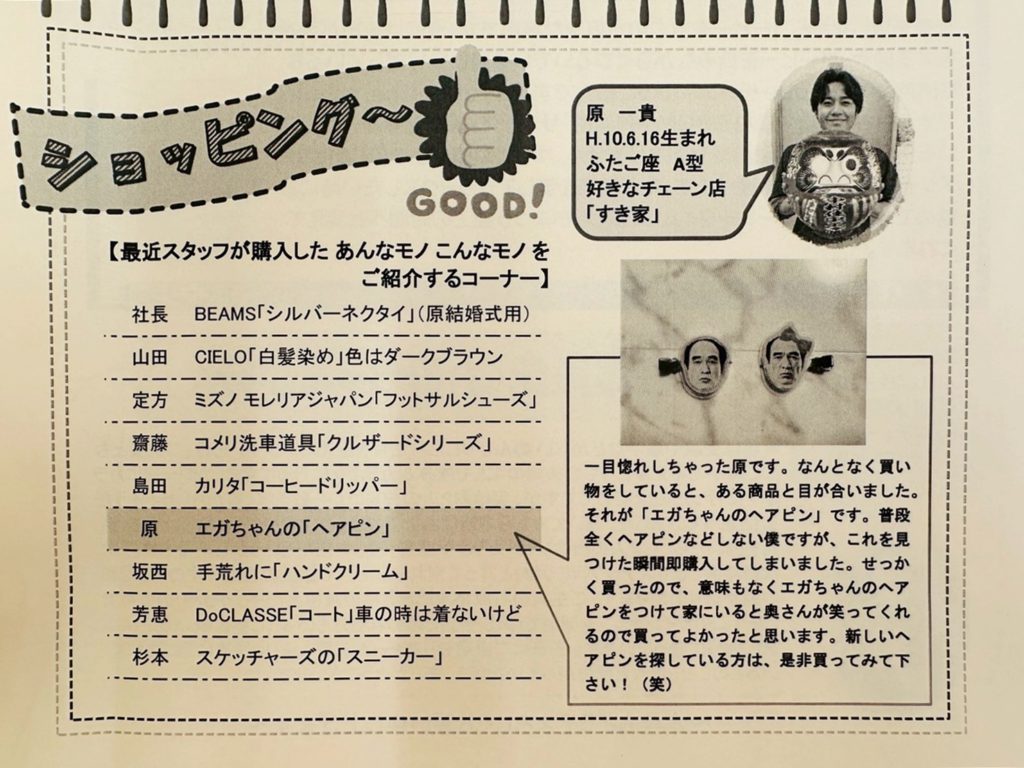 ショッピング〜
GOOD!
原 一貴
H.10.6.16生まれ
ふたご座 A型
好きなチェーン店
「すき家」
【最近スタッフが購入した あんなモノ こんなモノ を
ご紹介するコーナー】
社長 BEAMS「シルバーネクタイ」（原結婚式用）
山田 CIELO「白髪染め」色はダークブラウン
定方 ミズノ モレリアジャパン「フットサルシューズ」
齋藤 コメリ洗車道具「クルザードシリーズ」
島田 カリタ「コーヒードリッパー」
原 エガちゃんの「ヘアピン」
坂西 手荒れに「ハンドクリーム」
芳恵 DoCLASSE「コート」車の時は着ないけど
杉本 スケッチャーズの「スニーカー」
一目惚れしちゃった原です。なんとなく買い
物をしていると、ある商品と目が合いました。
それが「エガちゃんのヘアピン」です。普段
全くヘアピンなどしない僕ですが、これを見
つけた瞬間即購入してしまいました。せっか
く買ったので、意味もなくエガちゃんのヘア
ピンをつけて家にいると奥さんが笑ってくれ
るので買ってよかったと思います。新しいヘ
アピンを探している方は、是非買ってみて下
さい！（笑）